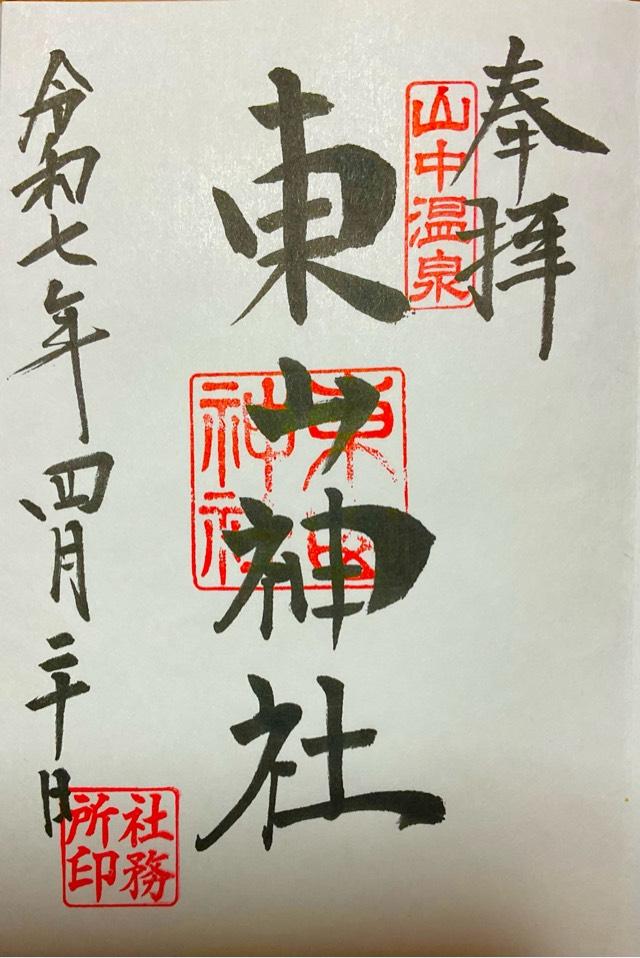 奉拝
山中温泉
東山神社
東山
神社
令和七年四月二十日
社務
所印